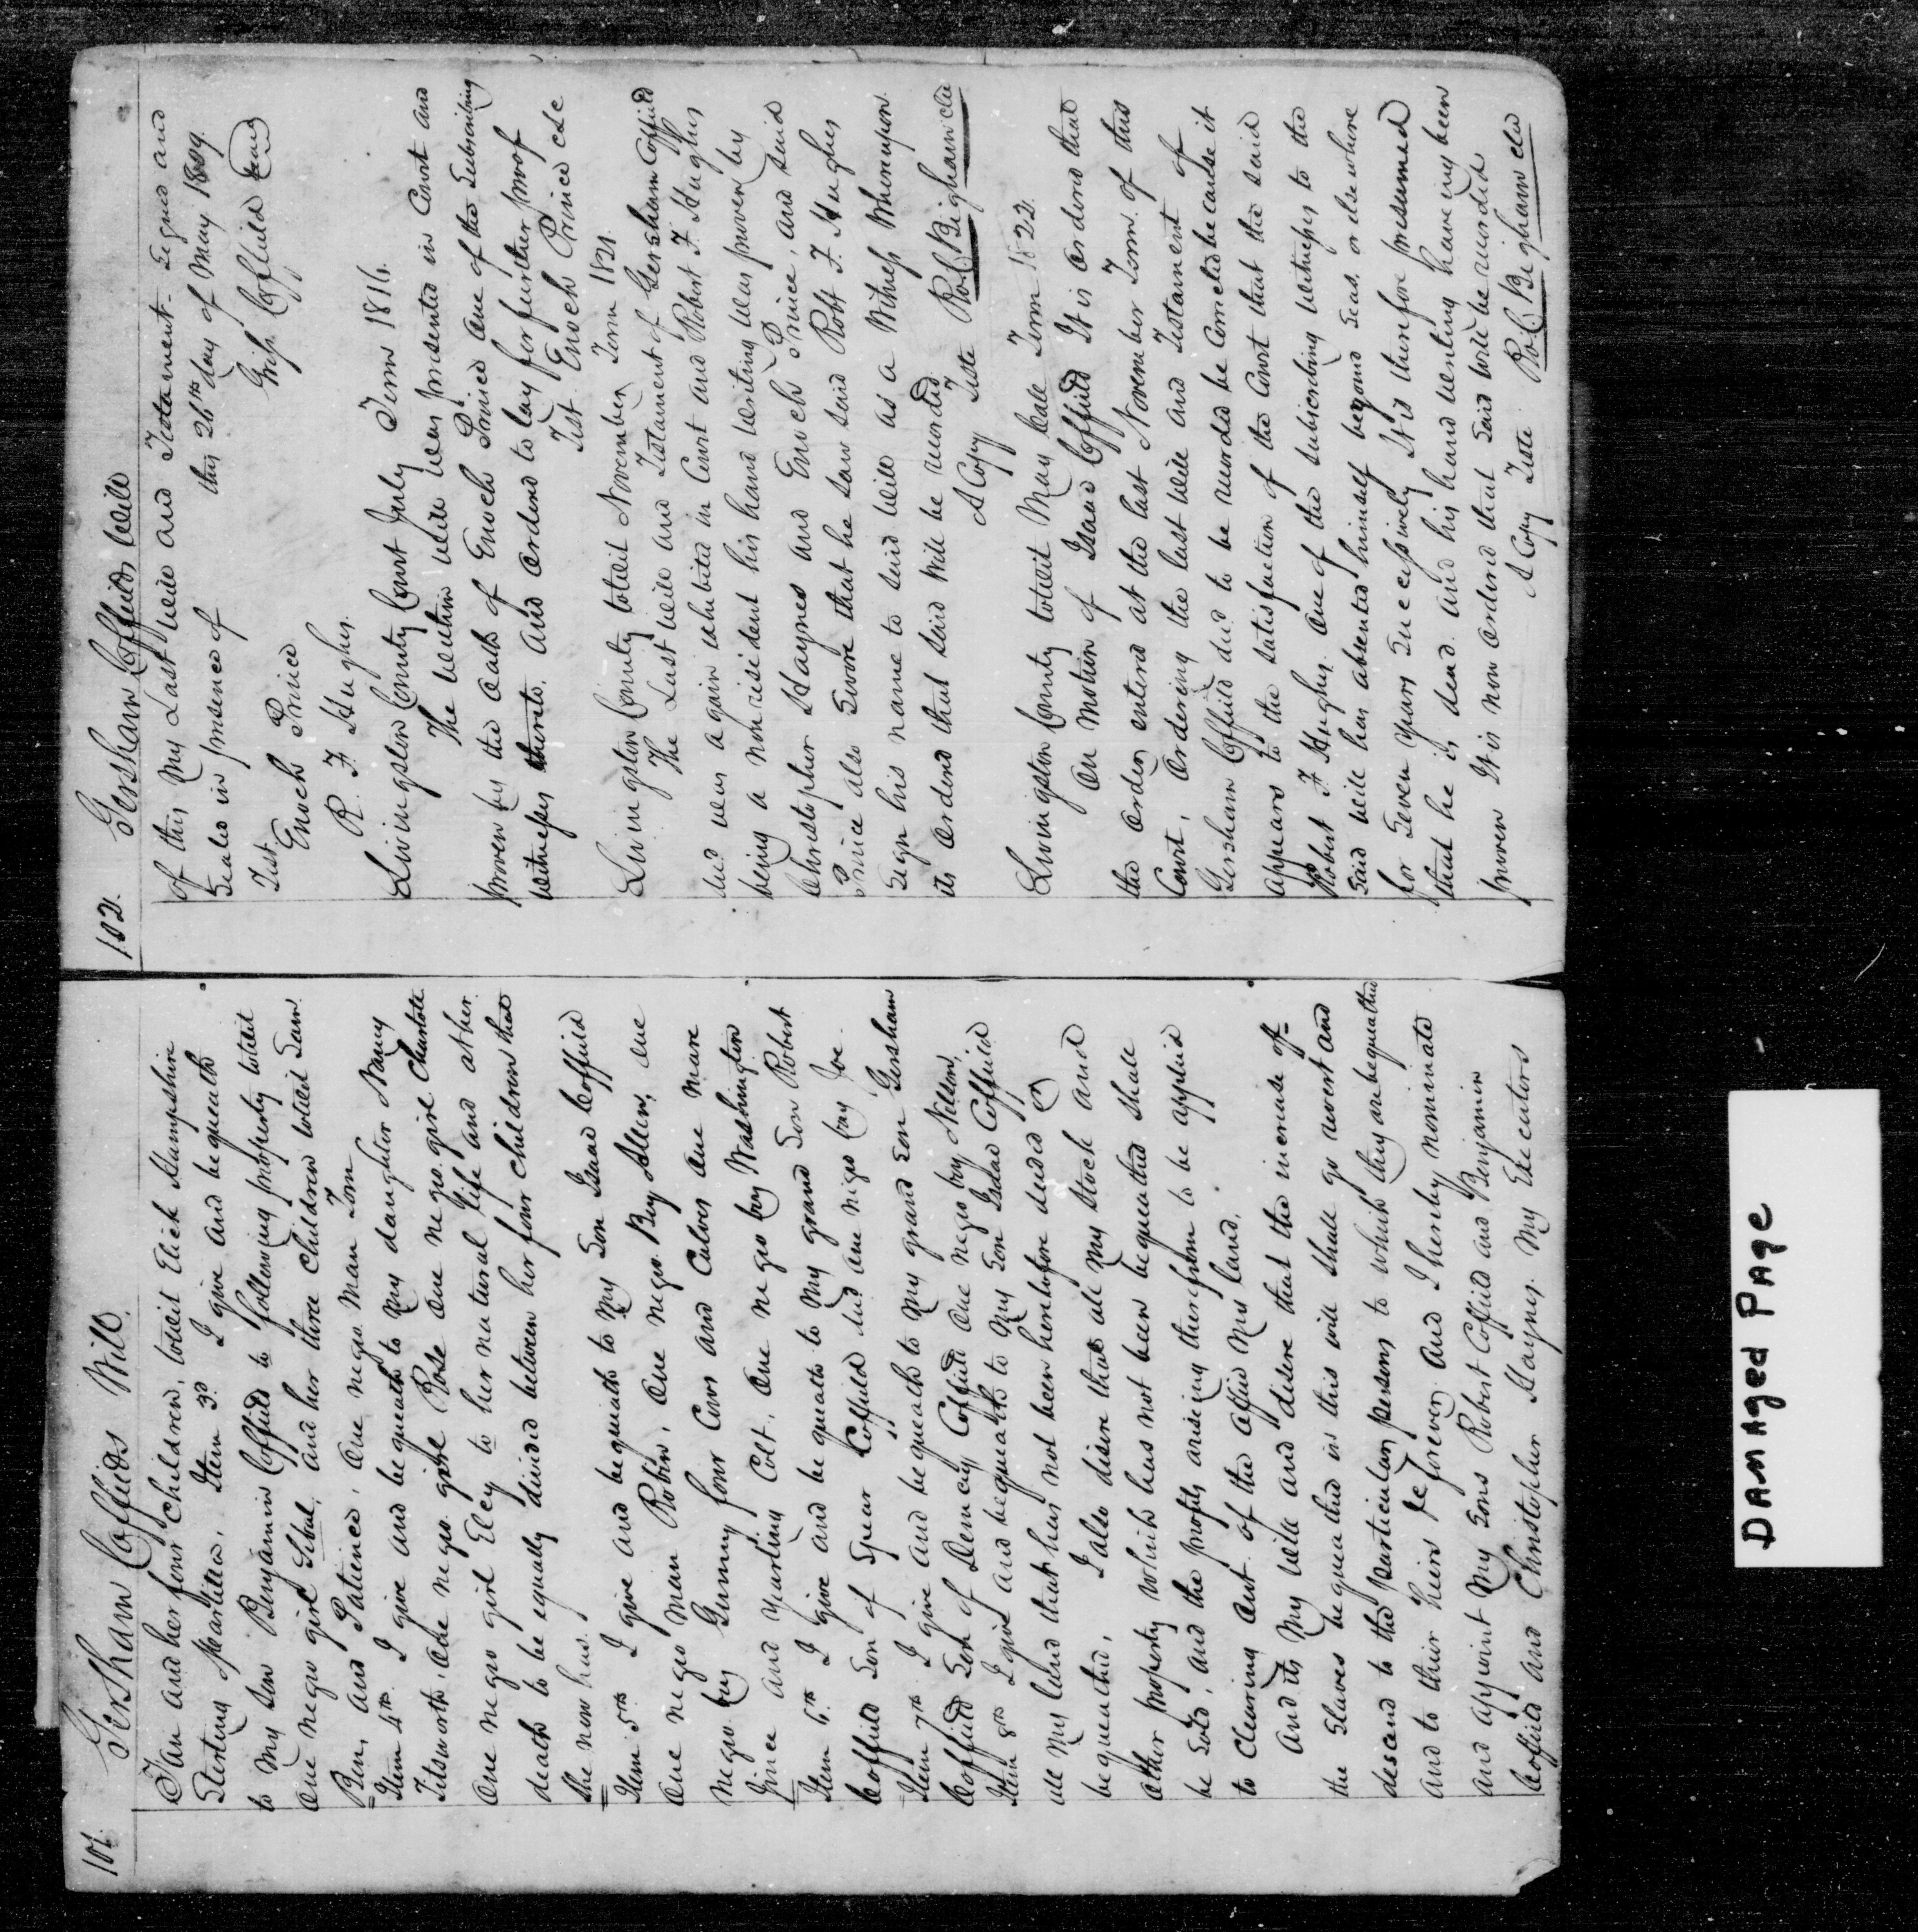 101. Gersham Coffields Will.
Fan and her four Children, towit Elick Hampshire
Sterling Marlilla. Item 3d I give and bequeath
to my Son Benjamin Coffield to following property towit
One negro girl and her three Children towit Sam
Ben, and Patience, One negro Man Tom
Item 4th I give and bequeath to my daughter Nancy
Titsworth, One negro girl Rose One negro girl Charlote
One negro girl Elcy to her natural life and at her
death to be equally divided between her four children that
She now has.
Item 5th I give and bequeath to My Son Isaac Coffield
One negro Man Robin, One negro Boy Allen, One
Negro boy Gunny four Cows and Calves One Mare
and Yearling Colt, One negro boy Washington
Item 6th I give and bequeath to My grand Son Robert
Coffield Son of Spear Coffield decd One negro boy Joe.
Item 7th I give and bequeath to my grand Son Gersham
Coffield Son of Demcy Coffield One negro boy Nelson,
Item 8th I give and bequeath to My Son Isaac Coffield
all My land that has not been heretofore deeded
bequeathed, I also desire that all My Stock and
Other property which has not been bequeathed shall
be Sold, and the profits ariseing therefrom to be applied
to Clearing out of the Offic My land.
And its My Will and desire that the increase of
the Slaves bequeathed in this will shall go and
descend to the particular persons to which they are bequeathed
and to their heirs forever. And I hereby nominate
and appoint My Sons Robert Coffield and Benjamin
Coffield and Christopher Haynes My Executors
102. Gersham Coffields Will
of this My Last Will and Testament. Signed and
Sealed in presence of this 26th day of May 1809.
Test. Grish Coffield Seal
Enoch Prince
R. F. Hughes.
Livingston County Court July Term 1816.
The within Will was presented in Court and
proven by the Oath of Enoch Prince One of the Subscribing
Witnesses thereto. And Ordered to lay for further proof
Test. Enoch Prince Clk
Livingston County towit November Term 1821.
The Last Will and Testament of Gersham Coffield
decd was again exhibited in Court and Robert F. Hughes
being a nonresident his hand writing was proven by
Christopher Haynes and Enoch Prince, and said
Prince also Swore that he saw said Robt F. Hughes
Sign his name to said Will as a Witness Whereupon
its Ordered that said Will be recorded.
A Copy Teste Ro. C. Bigham clk
Livingston County towit May Call Term 1822.
On Motion of Isaac Coffield It is Ordered that
the Order entered at the last November Term of this
Court, Ordering the last Will and Testament of
Gersham Coffield decd to be recorded be Corrected because it
appears to the satisfaction of the Court that the said
Robert F Hughes. One of the subscribing witnesses to the
said Will has absented himself beyond Seas. or elsewhere
for Seven Years Successively It is therefore presumed
that he is dead. And his hand writing haveing been
proven It is now Ordered that Said Will be recorded.
A Copy Teste Ro. C. Bigham clk
Damaged Page